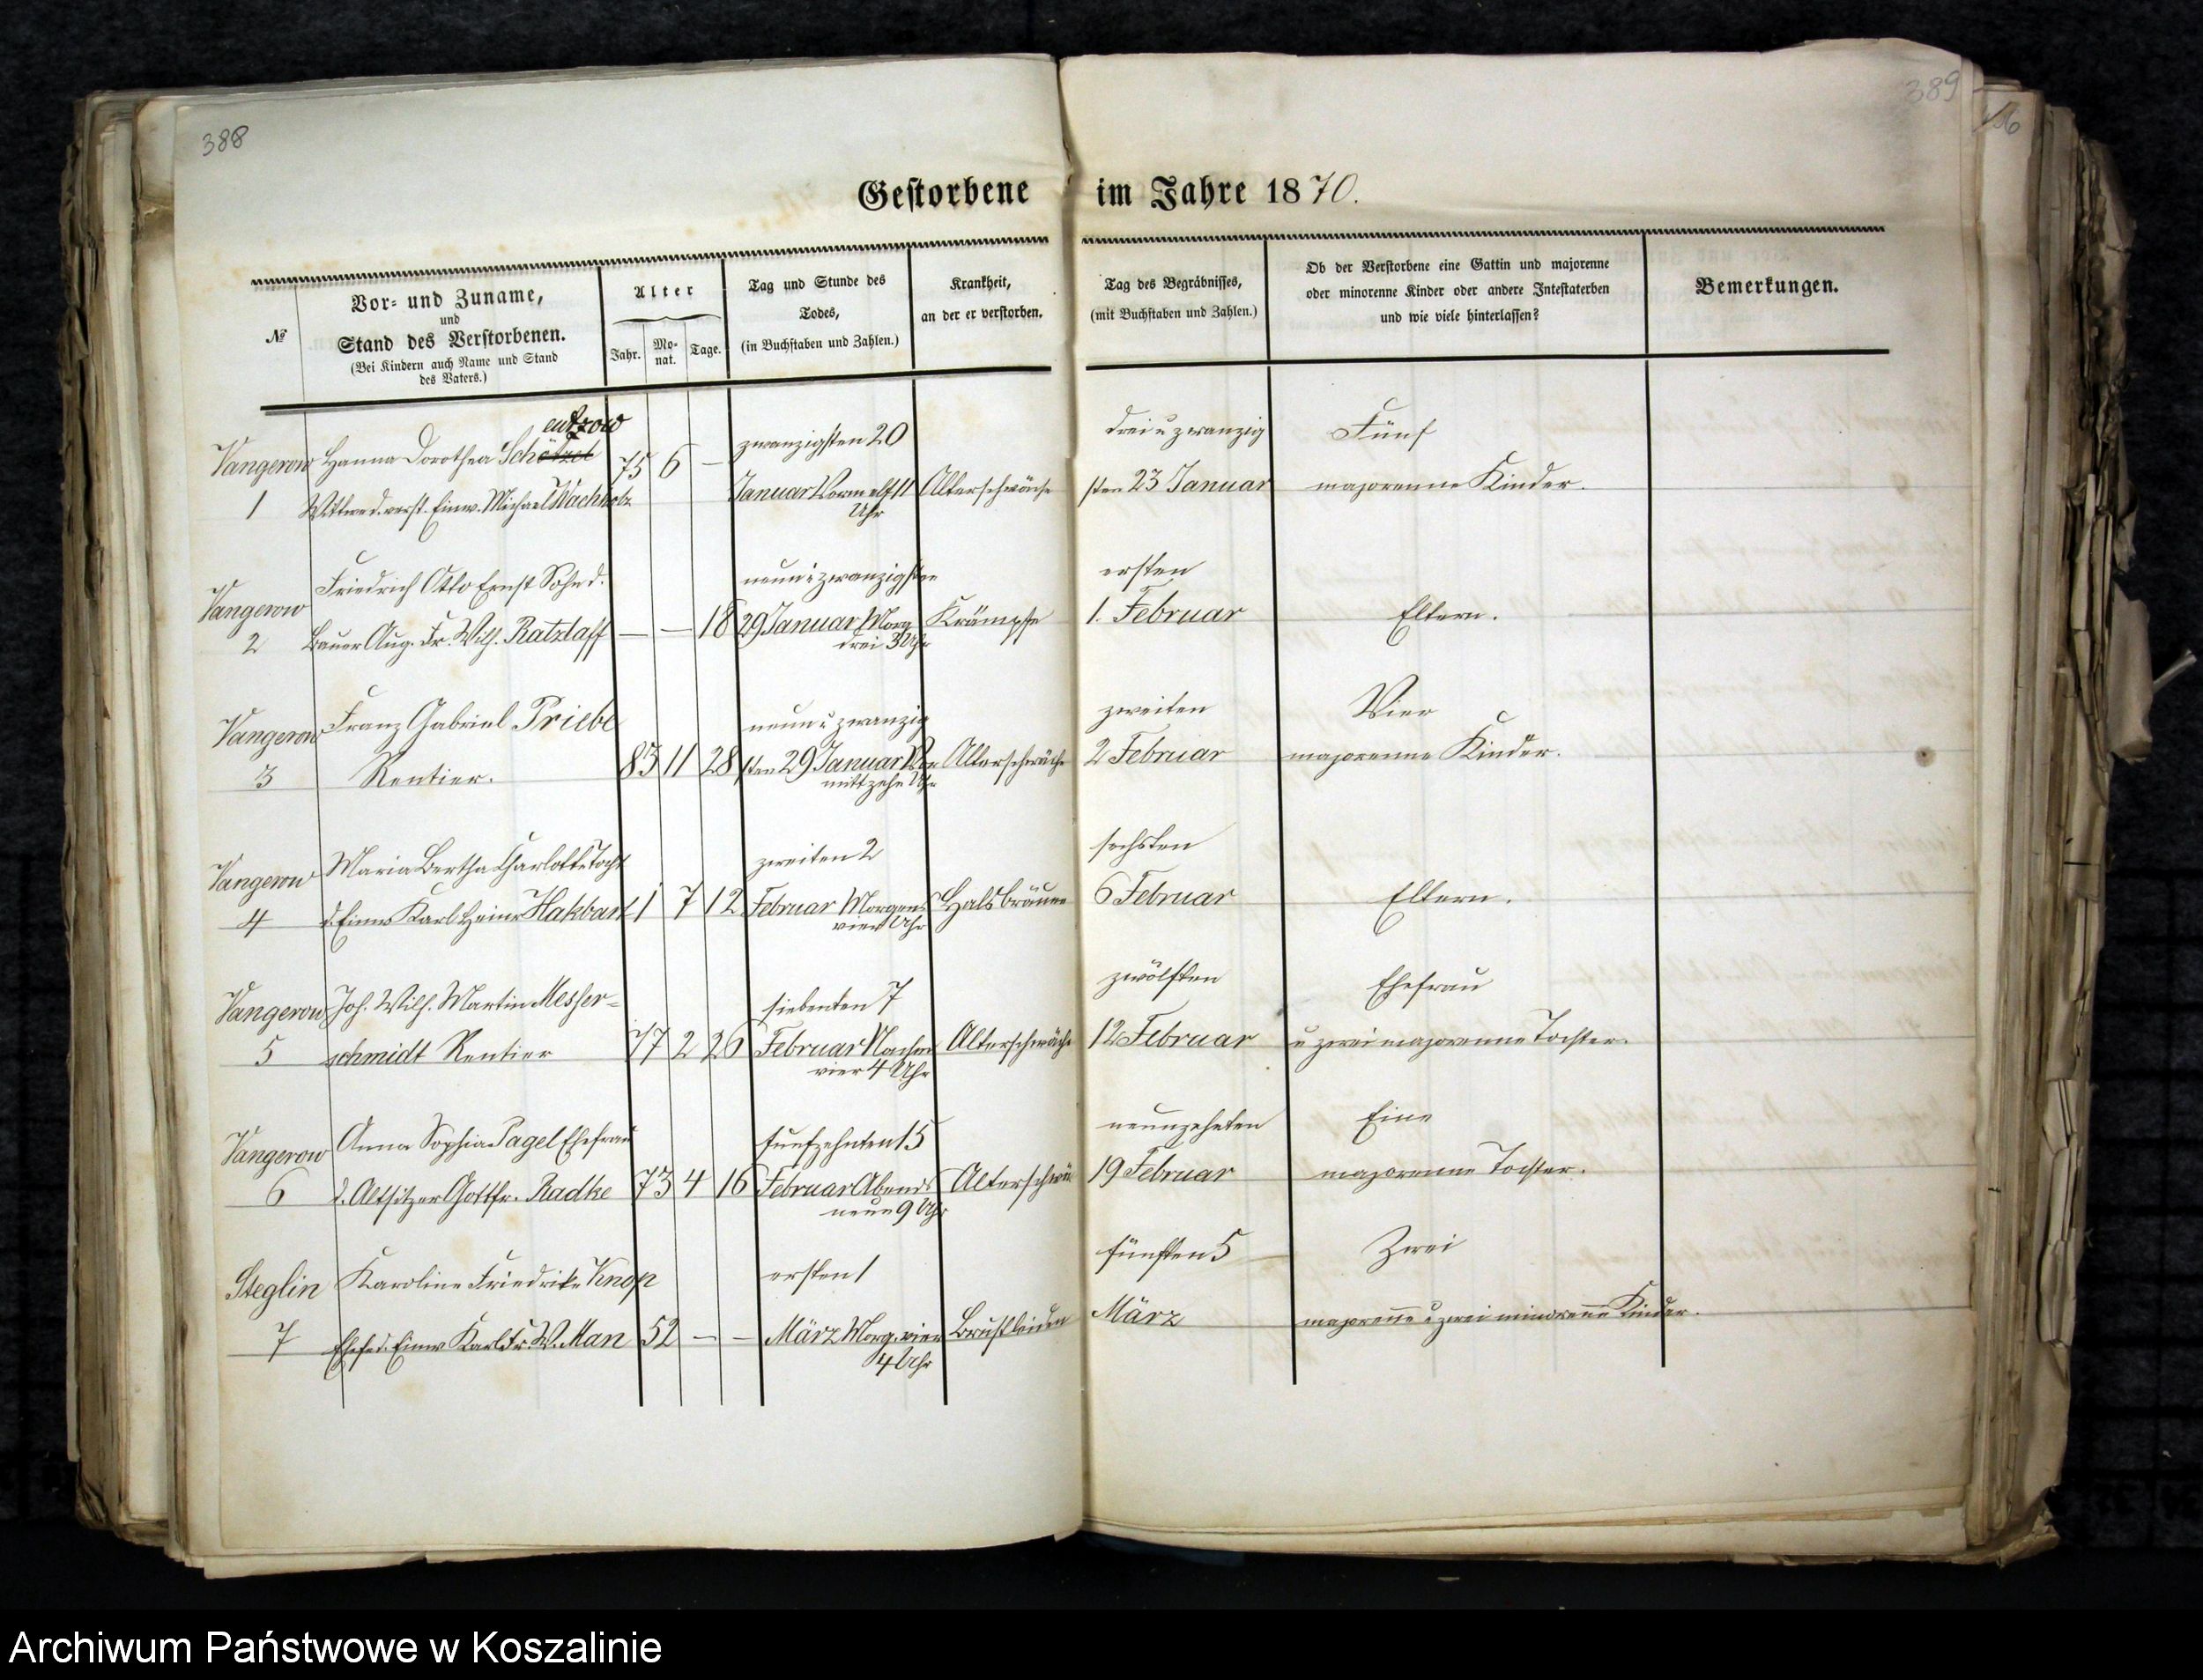 388
389
Gestorbene im Jahre 1870.
№
Vor- und Zuname,
und
Stand des Verstorbenen.
(Bei Kindern auch Name und Stand
des Vaters.)
Alter
Jahr.
Mo-
nat.
Tage.
Tag und Stunde des
Todes,
(in Buchstaben und Zahlen.)
Krankheit,
an der er verstorben.
Tag des Begräbnisses,
(mit Buchstaben und Zahlen.)
Ob der Verstorbene eine Gattin und majorenne
oder minorenne Kinder oder andere Intestaterben
und wie viele hinterlassen?
Bemerkungen.
Vangerow
1
entzow
Hanna Dorothea Schötzel
Wittwe d. verst. Einw. Michael Wachholz
75 6 —
zwanzigsten 20
Januar Vorm elf 11
Uhr
Alterschwäche
drei u zwanzig
sten 23 Januar
Fünf
majorenne Kinder.
Vangerow
2
Friedrich Otto Ernst Sohn d.
Bauer Aug. Fr. Wilh. Ratzlaff
— — 18
neun u zwanzigsten
29 Januar Morg
drei 3 Uhr
Krämpfe
ersten
1. Februar
Eltern.
Vangerow
3
Franz Gabriel Priebe
Rentier.
83 11 28
neun u zwanzig
sten 29 Januar Vor
mitt zehn Uhr
Alterschwäche
zweiten
2 Februar
Vier
majorenne Kinder.
Vangerow
4
Maria Bertha Charlotte Tocht
d. Einw Karl Heinr Hakbart
1 7 12
zweiten 2
Februar Morgens
vier Uhr
Halsbräune
sechsten
6 Februar
Eltern.
Vangerow
5
Joh. Wilh. Martin Messer-
schmidt Rentier
77 2 26
siebenten 7
Februar Nachm
vier 4 Uhr
Alterschwäche
zwölften
12 Februar
Ehefrau
u zwei majorenne Töchter.
Vangerow
6
Anna Sophia Pagel Ehefrau
d. Altsitzer Gottfr. Radke
73 4 16
fünfzehnten 15
Februar Abends
neun 9 Uhr
Alterschwä
neunzehnten
19 Februar
Eine
majorenne Tochter.
Steglin
7
Karoline Friedrike Knop
Ehef. d. Einw Karl Fr. W. Man
52 — —
ersten 1
März Morg. vier
4 Uhr
Brustleiden
fünften 5
März
Zwei
majorenne u zwei minorenne Kinder.
Archiwum Państwowe w Koszalinie